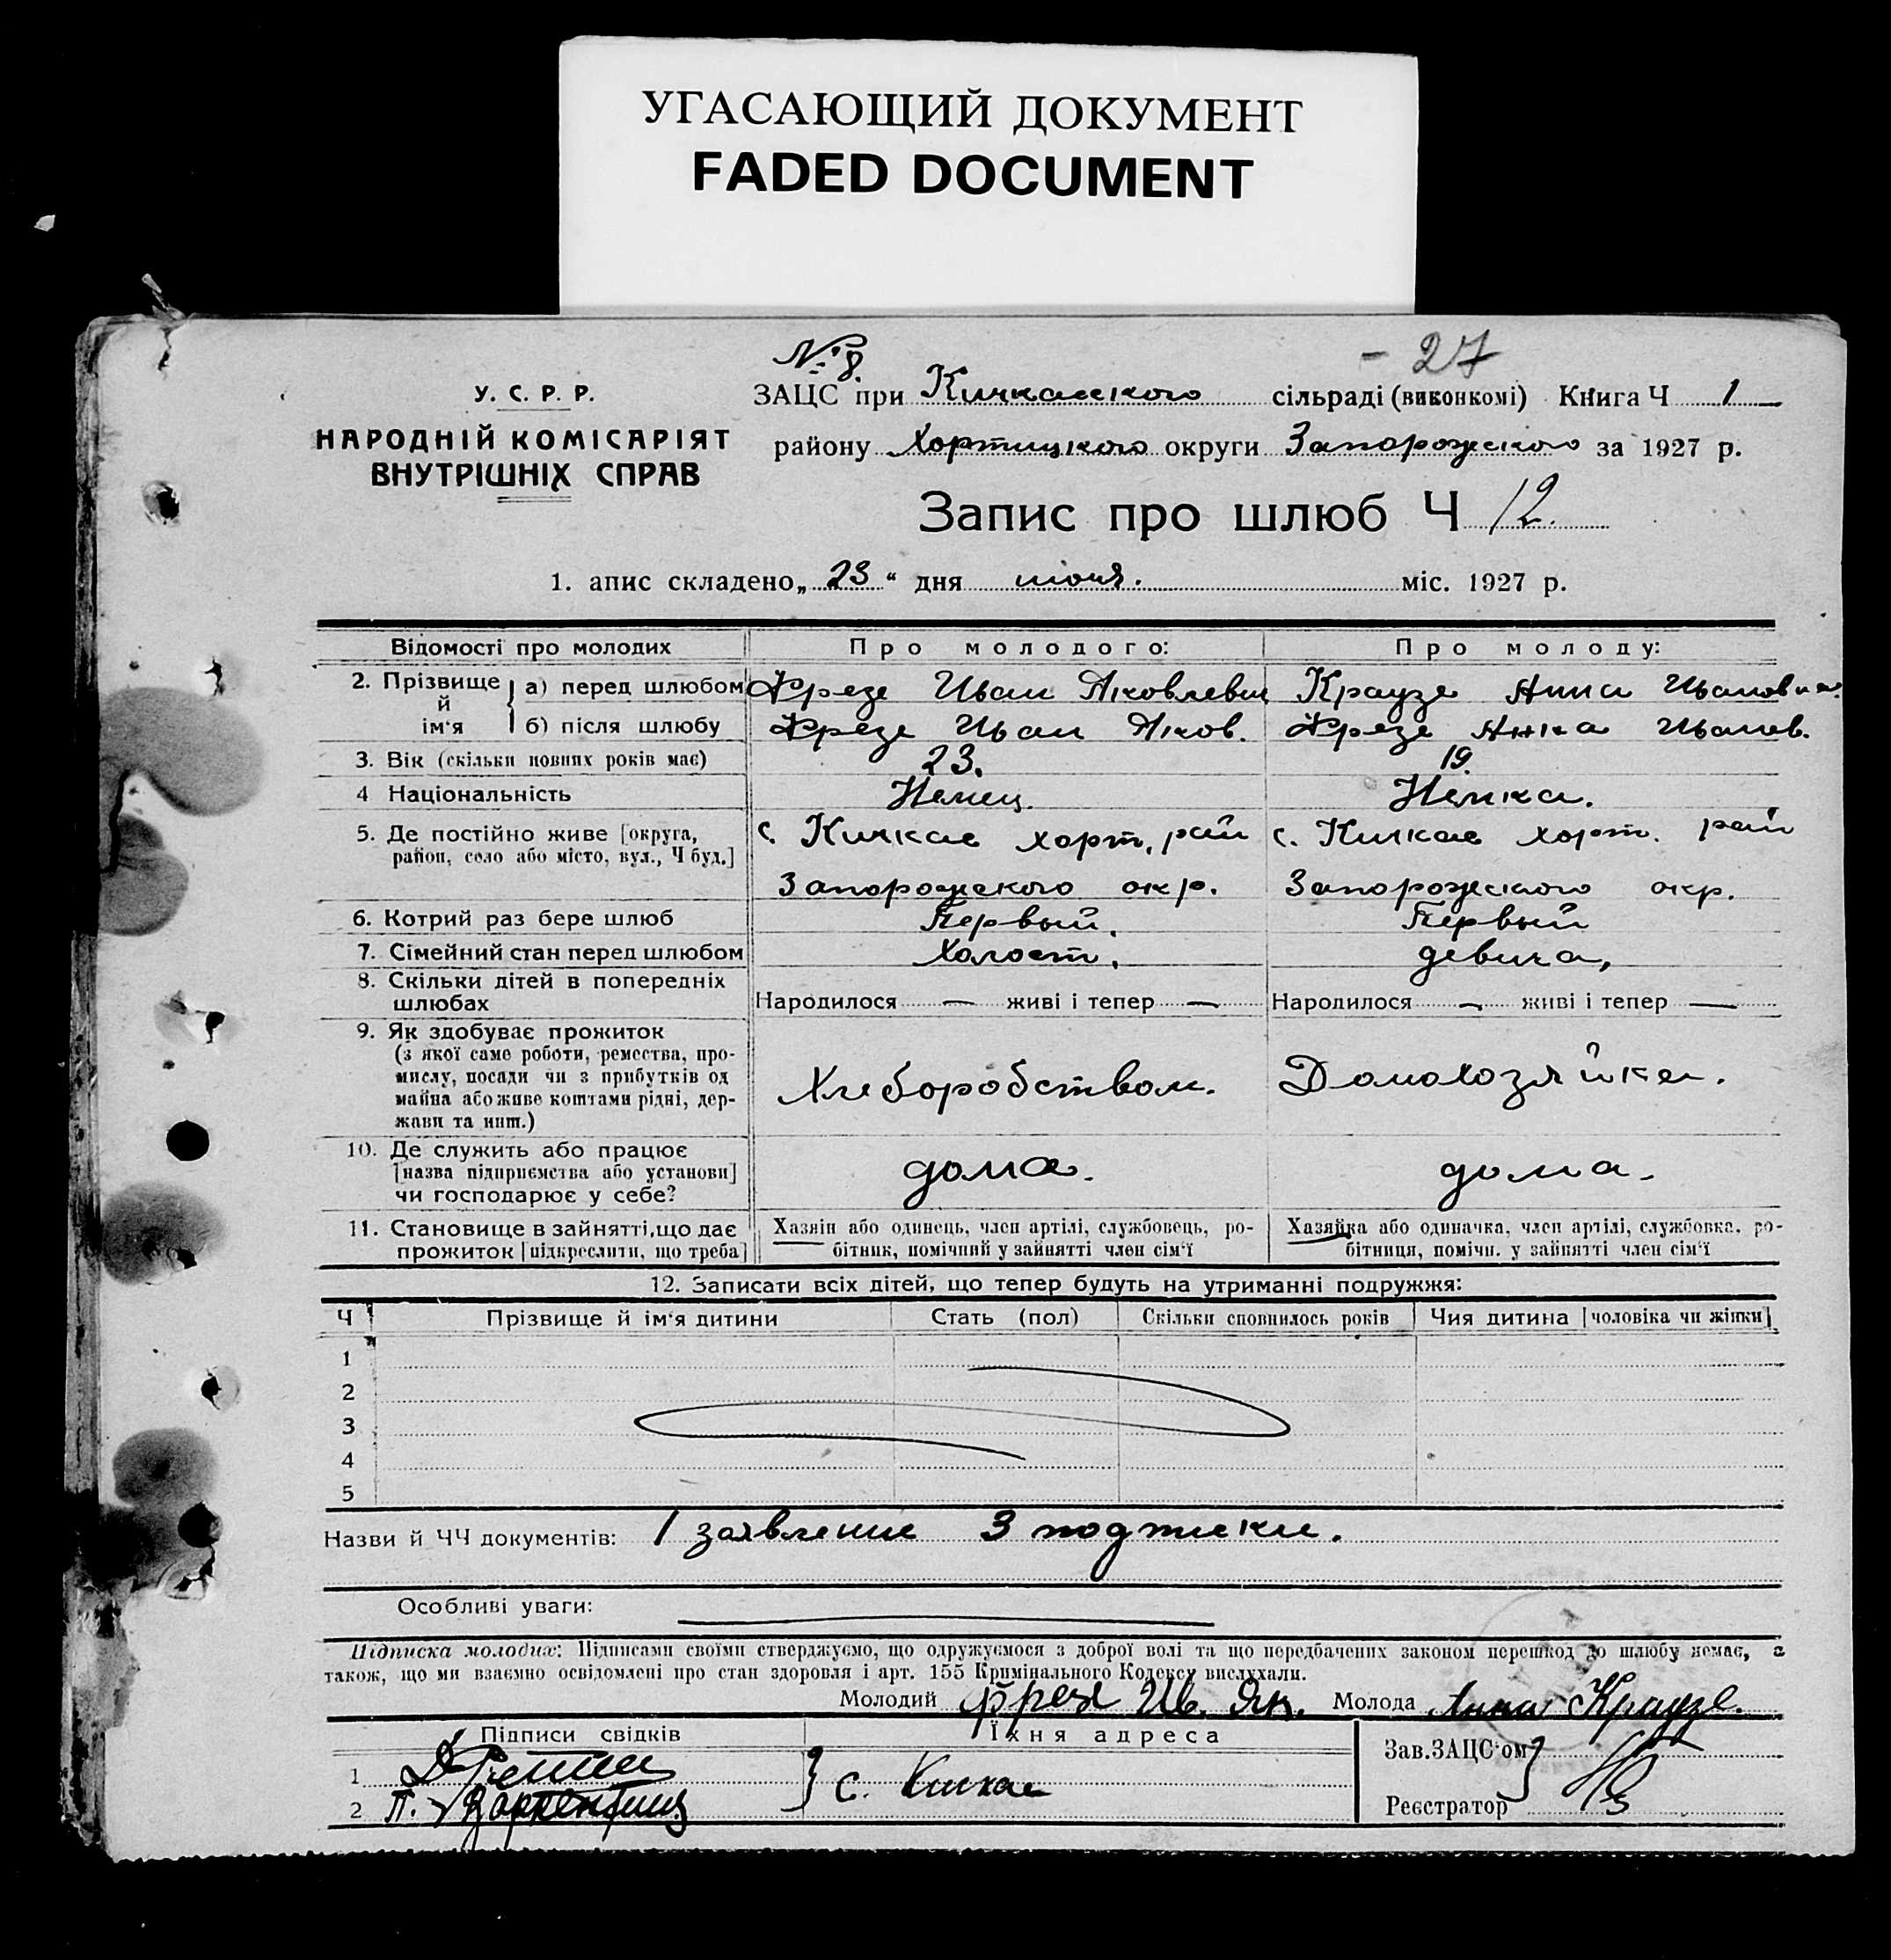 УГАСАЮЩИЙ ДОКУМЕНТ
FADED DOCUMENT
№ 8.
- 27
У. С. Р. Р.
НАРОДНІЙ КОМІСАРІЯТ
ВНУТРІШНІХ СПРАВ
ЗАЦС при Кичкасского сільраді (виконкомі) Книга Ч 1
району Хортицкого округи Запорожского за 1927 р.
Запис про шлюб Ч 12.
1. апис складено „ 23 “ дня июня. міс. 1927 р.
Відомості про молодих Про молодого: Про молоду:
2. Прізвище й ім'я
а) перед шлюбом Фрезе Иван Яковлевич Краузе Анна Ивановна.
б) після шлюбу Фрезе Иван Яков. Фрезе Анна Иванов.
3. Вік (скільки повних років має) 23. 19.
4 Національність Немец. Немка.
5. Де постійно живе [округа, район, село або місто, вул., Ч буд.]
с. Кичкас хорт. рай с. Кичкас хорт. рай
Запорожского окр. Запорожского окр.
6. Котрий раз бере шлюб Первый. Первый
7. Сімейний стан перед шлюбом Холост. девица,
8. Скільки дітей в попередніх
шлюбах Народилося — живі і тепер — Народилося — живі і тепер —
9. Як здобуває прожиток
(з якої саме роботи, ремества, про-
мислу, посади чи з прибутків од
майна або живе коштами рідні, дер-
жави та инш.)
Хлеборобством. Домохозяйка.
10. Де служить або працює
[назва підприємства або установи]
чи господарює у себе?
дома. дома.
11. Становище в зайнятті, що дає
прожиток [підкреслити, що треба]
Хазяін або одинець, член артілі, службовець, ро-
бітник, помічний у зайнятті член сім'ї
Хазяйка або одиначка, член артілі, службовка, ро-
бітниця, помічн. у зайнятті член сім'ї
12. Записати всіх дітей, що тепер будуть на утриманні подружжя:
Ч Прізвище й ім'я дитини Стать (пол) Скільки сповнилось років Чия дитина [чоловіка чи жінки]
1
2
3
4
5
Назви й ЧЧ документів: 1 заявление 3 подписки.
Особливі уваги:
Підписка молодих: Підписами своїми стверджуємо, що одружуємося з доброї волі та що передбачених законом перешкод до шлюбу немає, а
також, що ми взаємно освідомлені про стан здоровля і арт. 155 Кримінального Кодексу вислухали.
Молодий Фрезе Ив. Як. Молода Анна Краузе.
Підписи свідків Їхня адреса
1
2 П.
} с. Кичкас
Зав.ЗАЦС'ом
Реєстратор